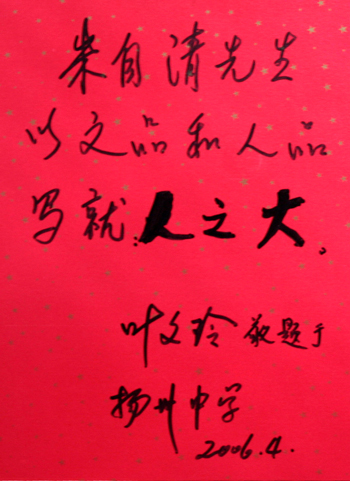 朱自清先生
以文品和人品
写就:人之大。
叶文玲 敬题于
扬州中学
2006.4.